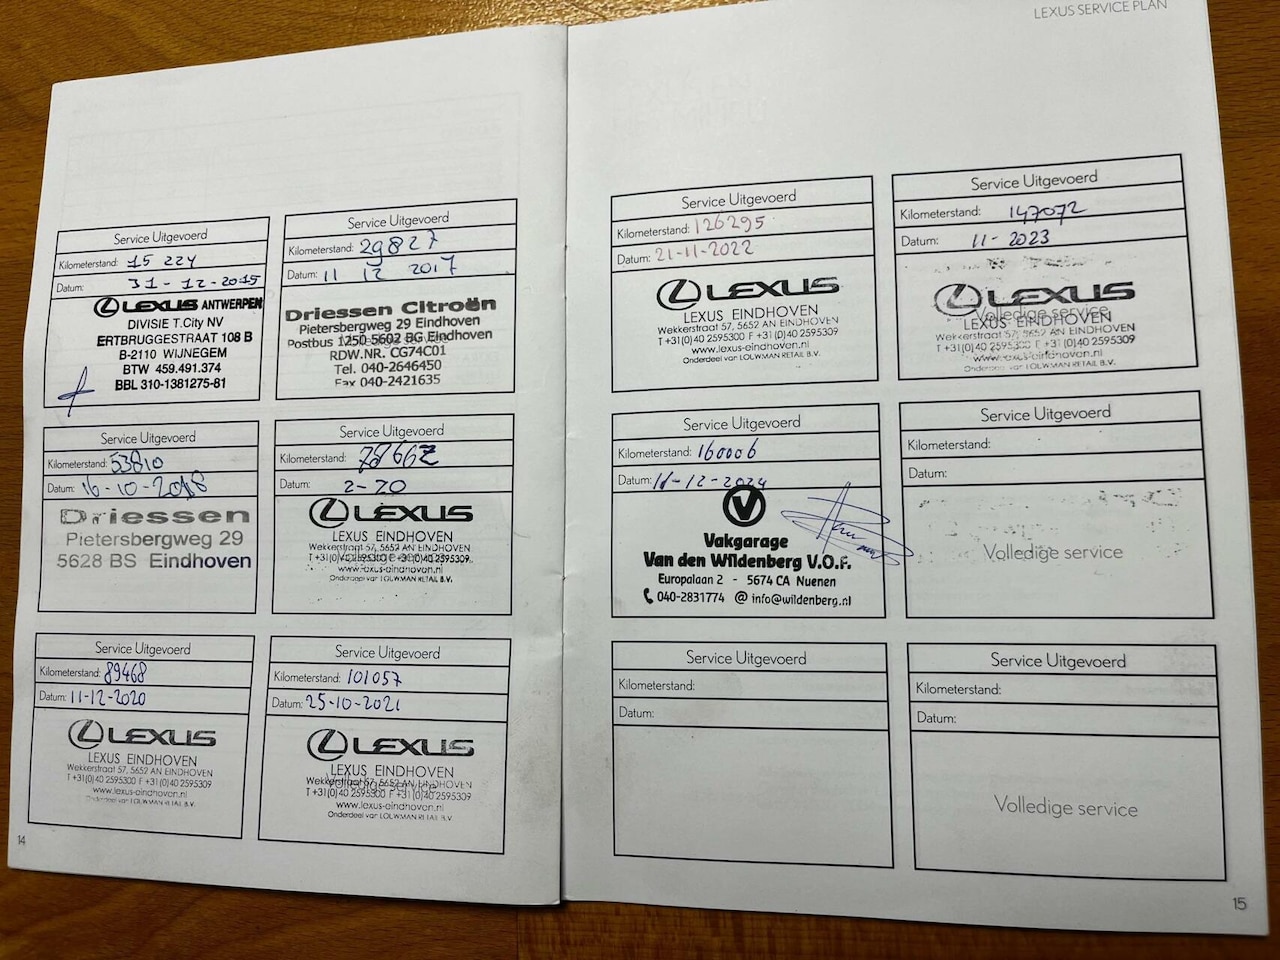 LEXUS SERVICE PLAN
Service Uitgevoerd
Kilometerstand: 15 224
Datum: 31-12-2015
LEXUS ANTWERPEN
DIVISIE T.City NV
ERTBRUGGESTRAAT 108 B
B-2110 WIJNEGEM
BTW 459.491.374
BBL 310-1381275-81
Service Uitgevoerd
Kilometerstand: 29827
Datum: 11 12 2017
Driessen Citroën
Pietersbergweg 29 Eindhoven
Postbus 1250 5602 BG Eindhoven
RDW.NR. CG74C01
Tel. 040-2646450
Fax 040-2421635
Service Uitgevoerd
Kilometerstand: 53810
Datum: 16-10-2018
Driessen
Pietersbergweg 29
5628 BS Eindhoven
Service Uitgevoerd
Kilometerstand: 78662
Datum: 2-20
LEXUS
LEXUS EINDHOVEN
Wekkerstraat 57, 5652 AN EINDHOVEN
T +31(0)40 2595300 F +31(0)40 2595309
www.lexus-eindhoven.nl
Onderdeel van LOUWMAN RETAIL B.V.
Service Uitgevoerd
Kilometerstand: 89468
Datum: 11-12-2020
LEXUS
LEXUS EINDHOVEN
Wekkerstraat 57, 5652 AN EINDHOVEN
T +31(0)40 2595300 F +31(0)40 2595309
www.lexus-eindhoven.nl
Onderdeel van LOUWMAN RETAIL B.V.
Service Uitgevoerd
Kilometerstand: 101057
Datum: 25-10-2021
LEXUS
LEXUS EINDHOVEN
Volledige service
Wekkerstraat 57, 5652 AN EINDHOVEN
T +31(0)40 2595300 F +31(0)40 2595309
www.lexus-eindhoven.nl
Onderdeel van LOUWMAN RETAIL B.V.
14
Service Uitgevoerd
Kilometerstand: 126295
Datum: 21-11-2022
LEXUS
LEXUS EINDHOVEN
Wekkerstraat 57, 5652 AN EINDHOVEN
T +31(0)40 2595300 F +31(0)40 2595309
www.lexus-eindhoven.nl
Onderdeel van LOUWMAN RETAIL B.V.
Service Uitgevoerd
Kilometerstand: 147072
Datum: 11-2023
LEXUS
Volledige service
LEXUS EINDHOVEN
Wekkerstraat 57, 5652 AN EINDHOVEN
T +31(0)40 2595300 F +31(0)40 2595309
www.lexus-eindhoven.nl
Onderdeel van LOUWMAN RETAIL B.V.
Service Uitgevoerd
Kilometerstand: 160006
Datum: 11-12-2024
V
Vakgarage
Van den Wildenberg V.O.F.
Europalaan 2 - 5674 CA Nuenen
040-2831774 @ info@wildenberg.nl
Service Uitgevoerd
Kilometerstand:
Datum:
Volledige service
Service Uitgevoerd
Kilometerstand:
Datum:
Service Uitgevoerd
Kilometerstand:
Datum:
Volledige service
15